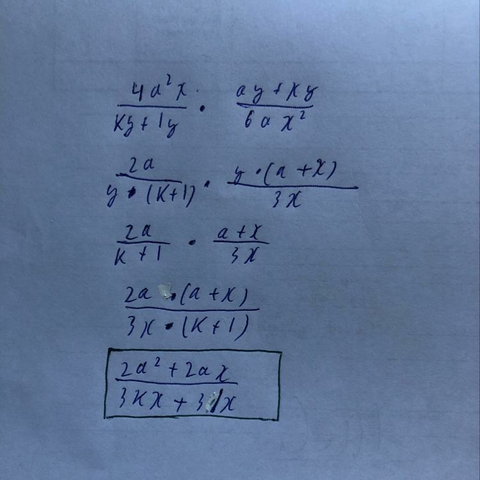 4a²x / ky+1y · ay+xy / 6ax²
2a / y·(k+1) · y·(a+x) / 3x
2a / k+1 · a+x / 3x
2a·(a+x) / 3x·(k+1)
2a²+2ax / 3kx+3x